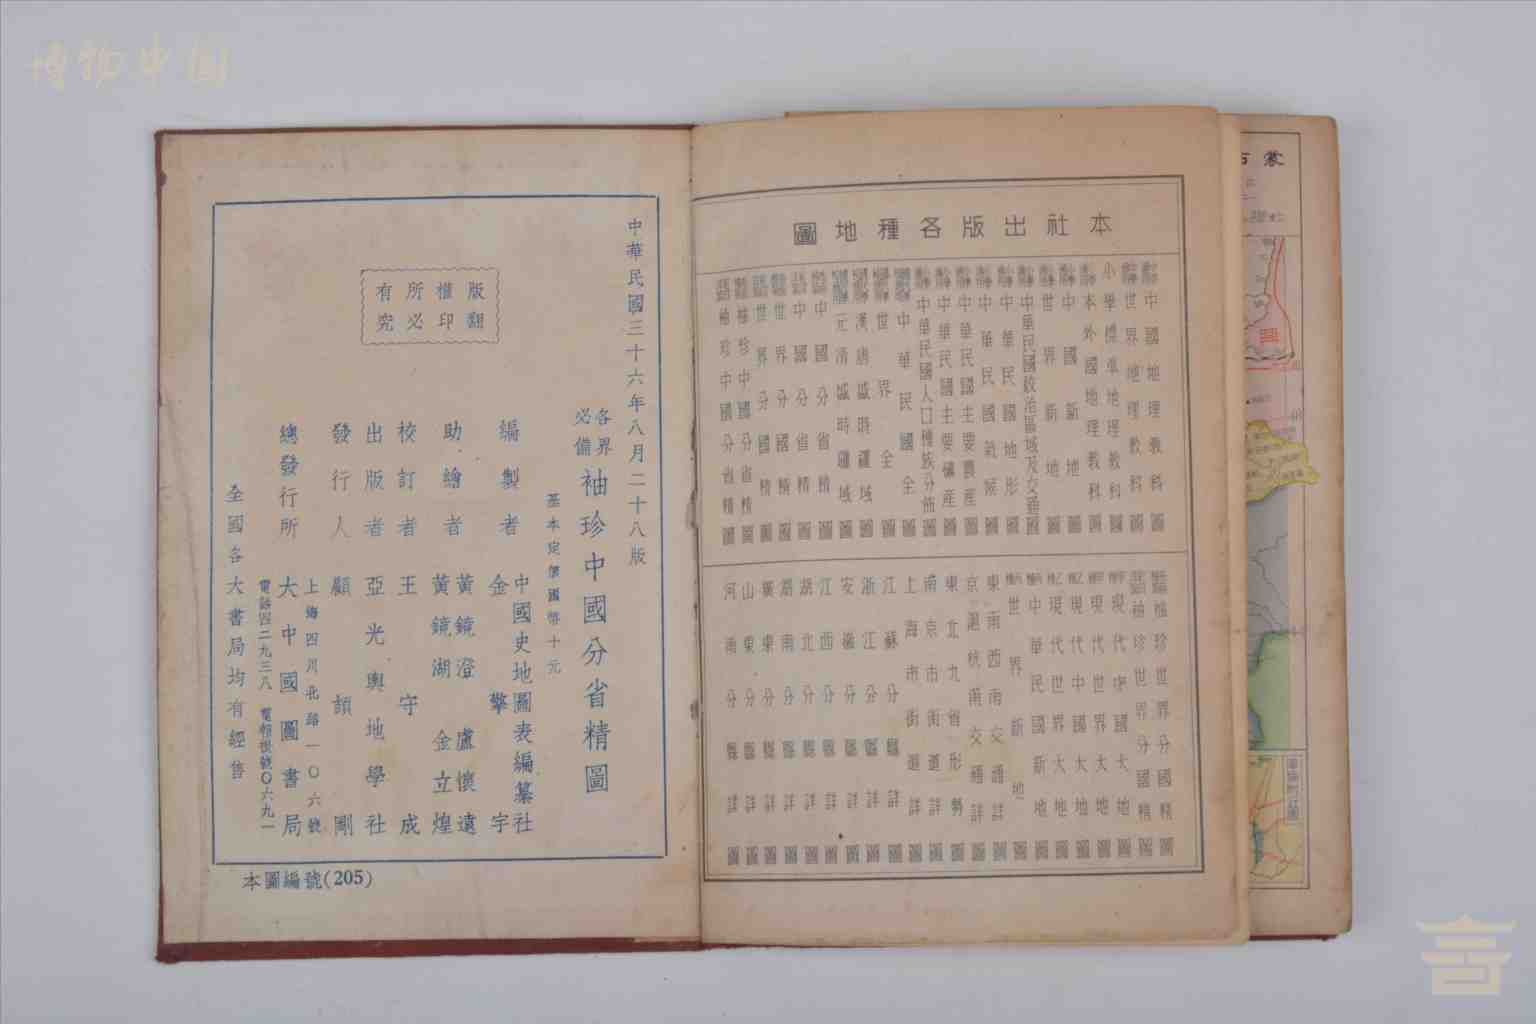 博物中国
中華民國三十六年八月二十八版
版權所有
翻印必究
各界必備
袖珍中國分省精圖
基本定價國幣十元
編製者 中國史地圖表編纂社
金擎宇
助繪者 黃鏡澄 盧懷遠
黃鏡湖 金立煌
校訂者 王守成
出版者 亞光輿地學社
發行人 顧頡剛
總發行所 上海四川北路一〇六號
大中國圖書局
電話四二九三八 電報掛號〇六九一
全國各大書局均有經售
本圖編號(205)
本社出版各種地圖
中國地理教科圖
世界地理教科圖
小學標準地理教科圖
本外國地理教科圖
中國新地圖
世界新地圖
中華民國政治區域及交通圖
中華民國地形圖
中華民國氣候圖
中華民國主要農產圖
中華民國主要礦產圖
中華民國人口種族分佈圖
中華民國全圖
世界全圖
漢唐盛時疆域圖
元清盛時疆域圖
中國分省精圖
中國分省精圖
世界分國精圖
世界分國精圖
袖珍中國分省精圖
袖珍中國分省精圖
袖珍世界分國精圖
袖珍世界分國精圖
現代中國大地圖
現代世界大地圖
現代中國大地圖
現代世界大地圖
中華民國新地圖
世界新地圖
東南西南交通詳圖
京滬杭甬交通詳圖
東北九省形勢圖
南京市街道詳圖
上海市街道詳圖
江蘇分縣詳圖
浙江分縣詳圖
安徽分縣詳圖
江西分縣詳圖
湖北分縣詳圖
湖南分縣詳圖
廣東分縣詳圖
山東分縣詳圖
河南分縣詳圖
蒙古